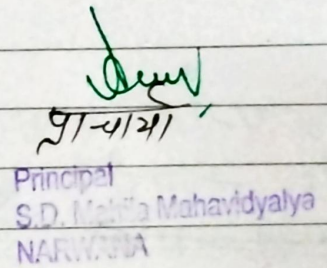 प्राचार्या
Principal
S.D. Mahila Mahavidyalya
NARWANA